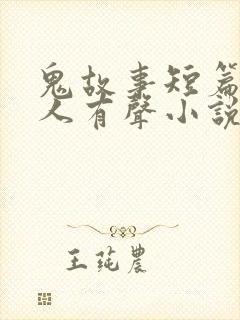 鬼故事短篇
人有聲小說
王莼農